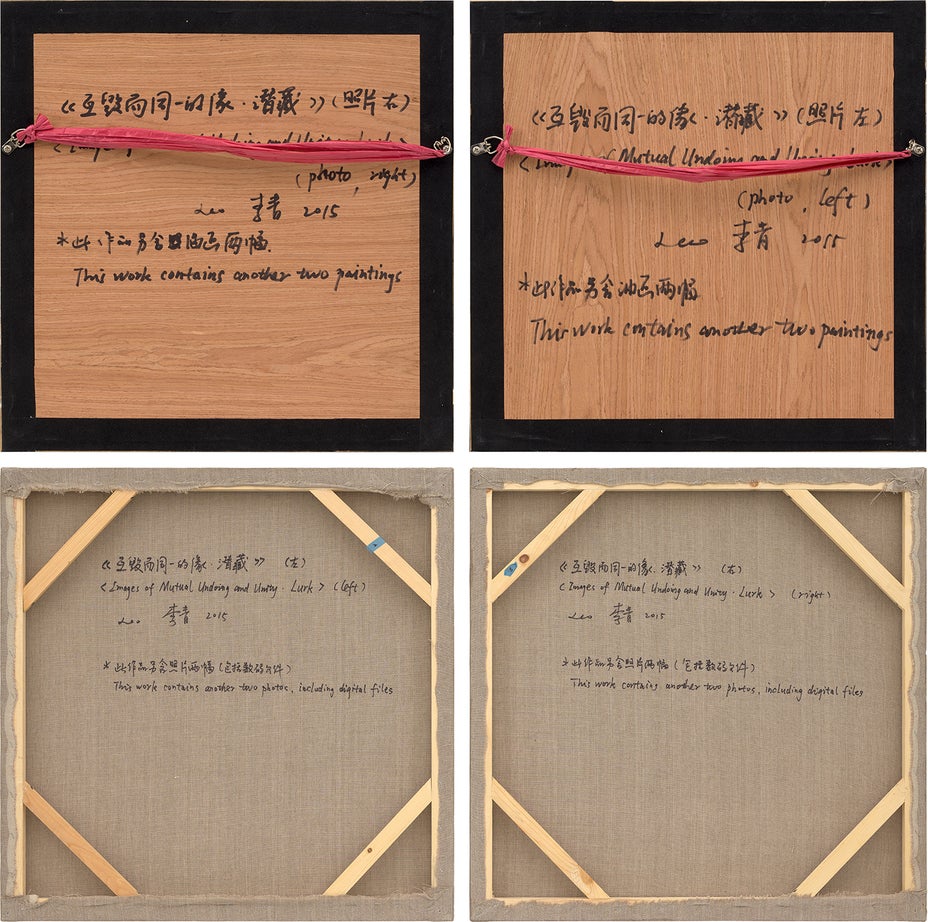 《互毁而同一的像·潜藏》(照片右)
Mutual Undoing and
(photo, right)
Leo 李青 2015
*此作品另含 油画两幅.
This work contains another two paintings
《互毁而同一的像·潜藏》(照片左)
Mutual Undoing and
(photo, left)
Leo 李青 2015
*此作品另含油画两幅
This work contains another two paintings
《互毁而同一的像·潜藏》 (左)
<Images of Mutual Undoing and Unity · Lurk> (left)
Leo 李青 2015
*此作品另含照片两幅(包括数码文件)
This work contains another two photos, including digital files
《互毁而同一的像·潜藏》
<Images of Mutual Undoing and Unity · Lurk> (right)
Leo 李青 2015
*此作品另含照片两幅(包括数码文件)
This work contains another two photos, including digital files